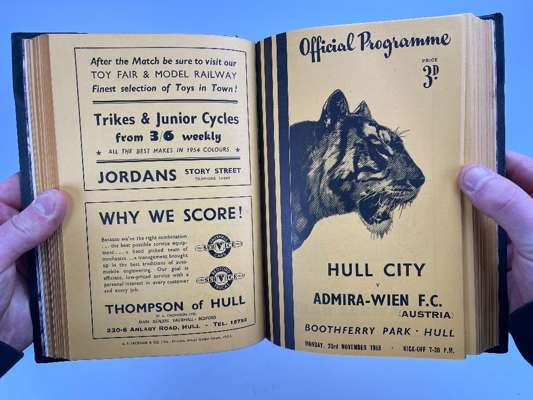 After the Match be sure to visit our
TOY FAIR & MODEL RAILWAY
Finest selection of Toys in Town!
Trikes & Junior Cycles
from 3/6 weekly
★ ALL THE BEST MAKES IN 1954 COLOURS ★
JORDANS STORY STREET
WHY WE SCORE!
Because we're the right combination
... the best possible service equip-
ment ... a hand picked team of
mechanics ... a management brought
up in the best traditions of auto-
mobile engineering. Our goal is
efficient, low-priced service with a
personal interest in every customer
and every job.
THOMPSON of HULL
MAIN DEALERS VAUXHALL - BEDFORD
230-6 ANLABY ROAD, HULL - TEL.
Official Programme
PRICE
3D
HULL CITY
v
ADMIRA-WIEN F.C.
(AUSTRIA)
BOOTHFERRY PARK · HULL
MONDAY, 23rd NOVEMBER 1953 · KICK-OFF 7-30 P.M.